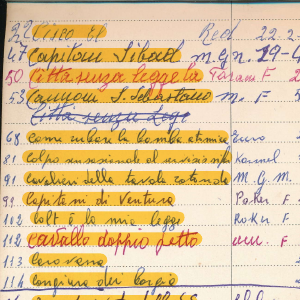 22 Cisco El Red 22.2
47 Capitan Sibad M.G.M. 29-4
50 Città senza legge la Param F 2
53 Cannoni S. Sebastiano M. F
Città senza legge
68 Come rubare la bomba atomica Euro
81 Colpo sensazionale al servizio
91 Cavalieri della tavola rotonda M.G.M.
99 Capitani di ventura F
102 Colt è la mia legge F
112 Cavallo doppio petto F.
113 Carovana
114 Congiura dei Borgia